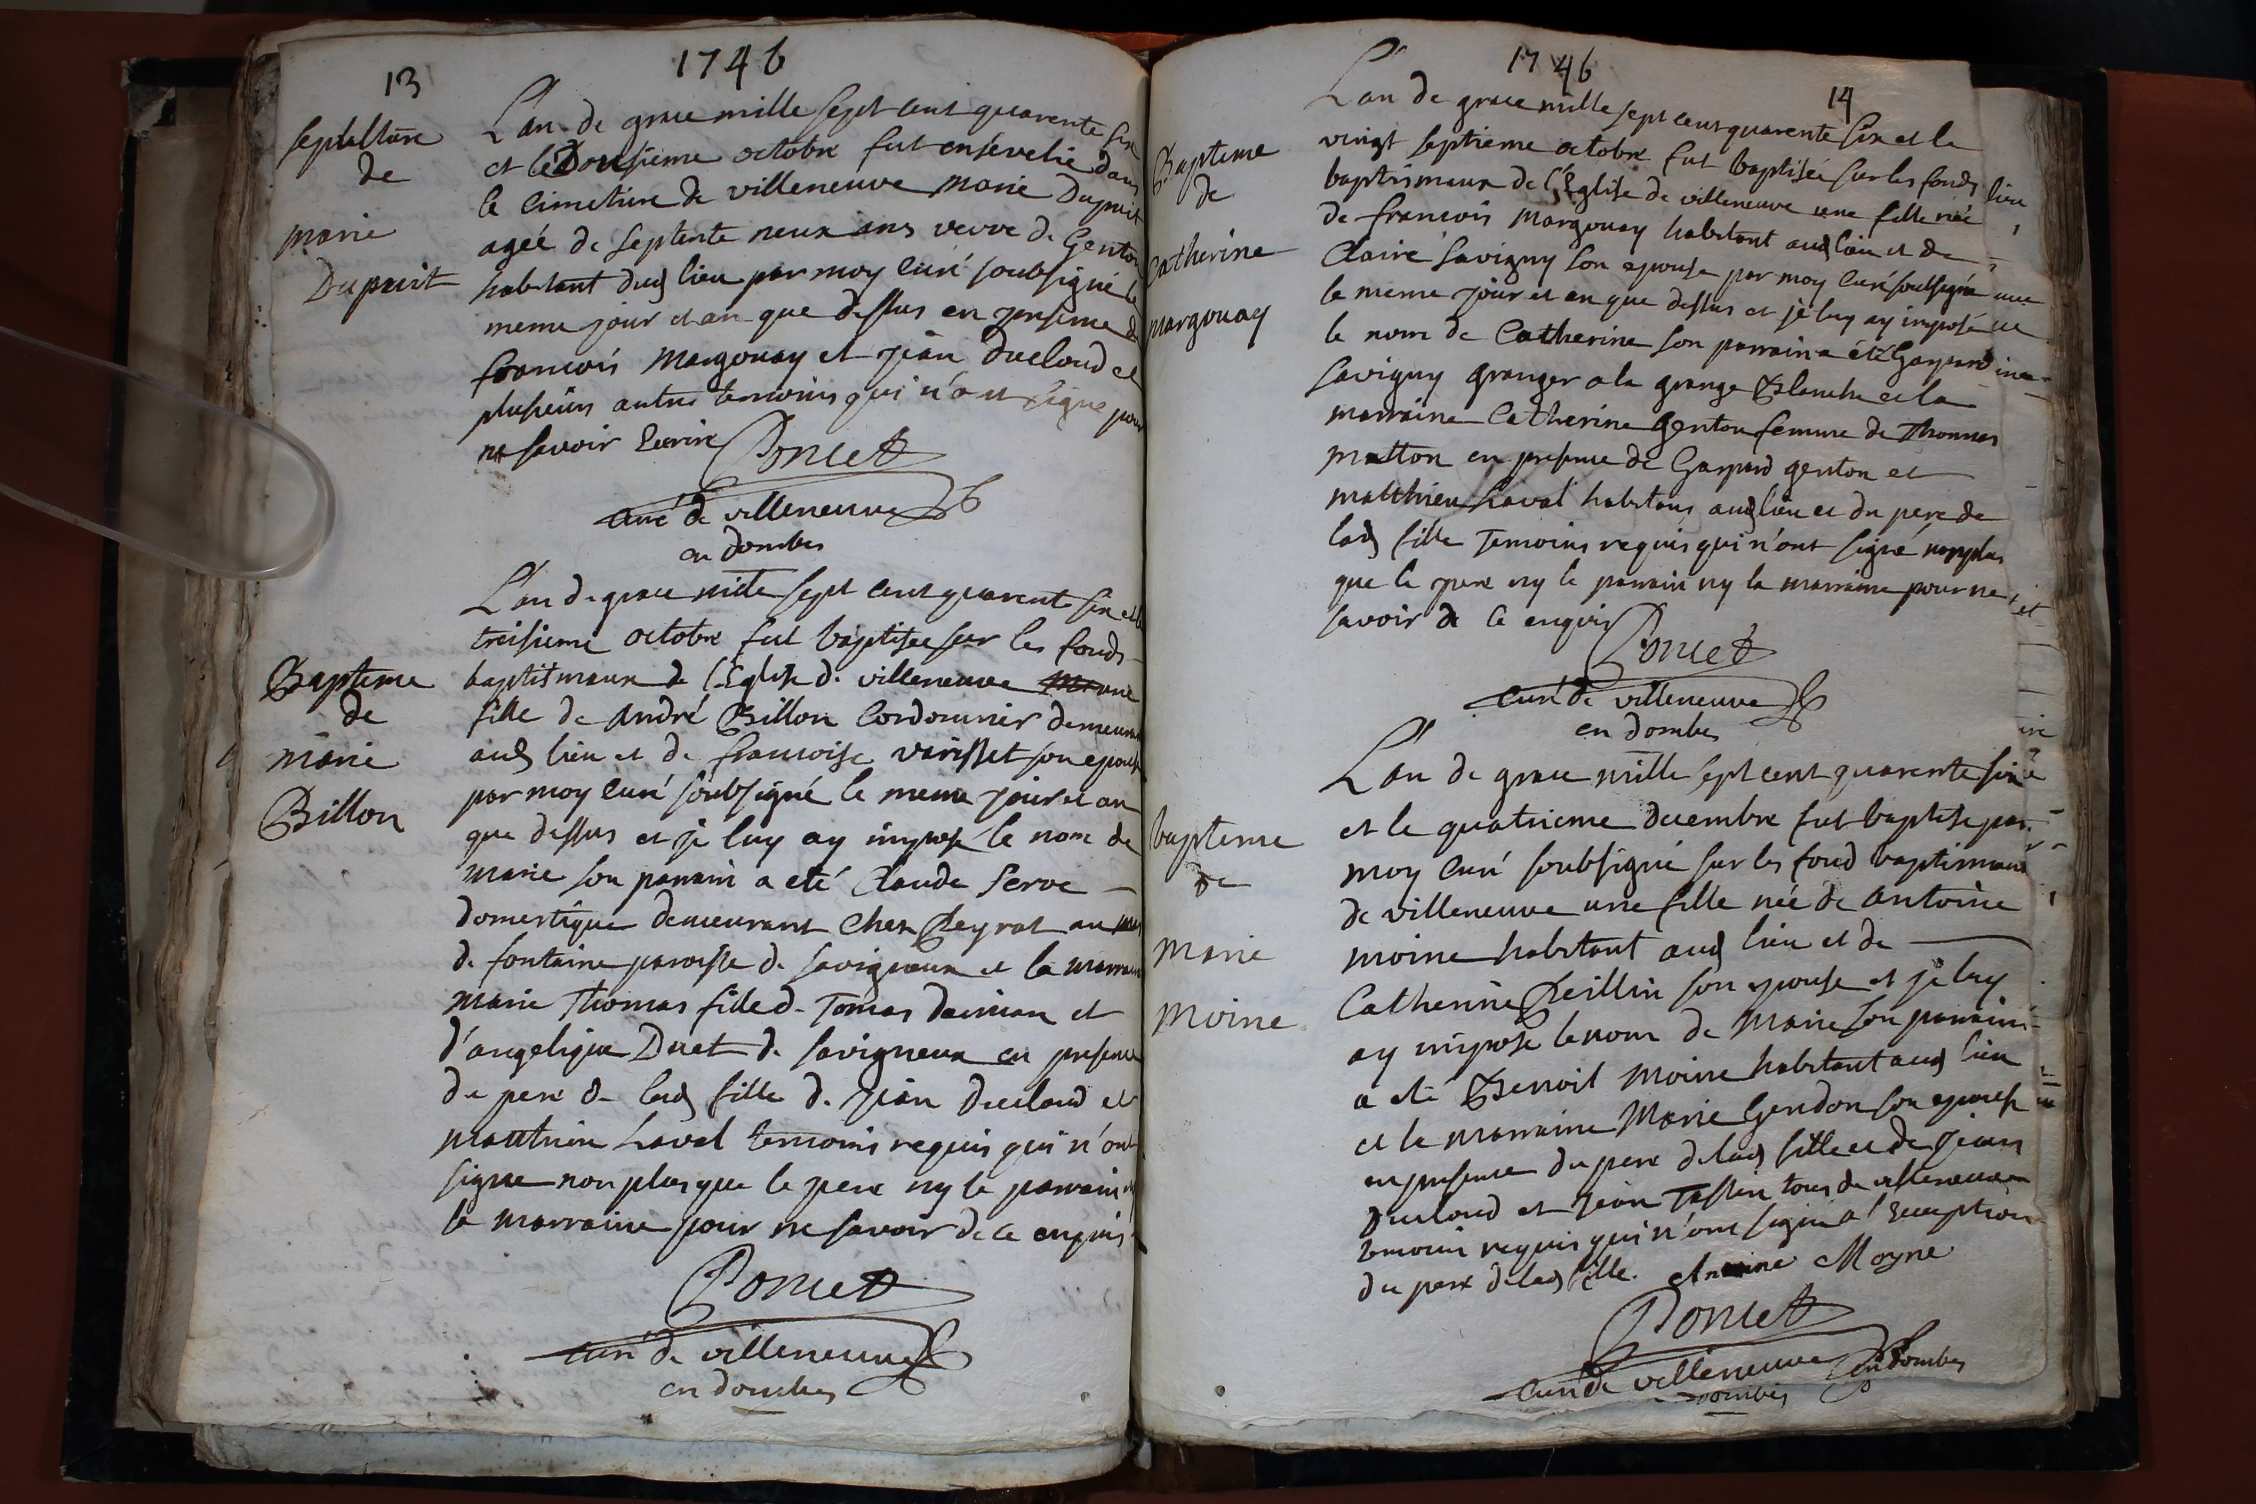 13
1746
Sepulture
de
marie
Dupuit
L'an de grace mille sept cent quarente six
et le Dousieme octobre fut ensevelie dans
le cimetiere de villeneuve marie Dupuit
ageé de septente neux ans vevve de Genton
habitant dud lieu par moy curé soubsigné le
meme jour et an que dessus en presence de
francois Margouay et jean Ducloud et
plusieurs autres temoins qui n'ont signe pour
ne savoir Ecrire
Poncet
curé de villeneuve
en dombes
Bapteme
de
marie
Billon
L'an de grace mille sept cent quarente six et le
treisieme octobre fut baptisee sur les fonds
baptismaux de l'Eglise de villeneuve une
fille de André Billon Cordonnier demeurant
aud lieu et de francoise varisset son epouse
par moy curé soubsigné le meme jour et an
que dessus et je luy ay imposé le nom de
marie son parrain a eté Claude Serve
domestique demeurant chez Peyrat au mas
de fontaine paroisse de savigneux et la marraine
marie Thomas fille de Tomas damian et
d'angelique Duet de savigneux en presence
du pere de lad fille de jean Ducloud et
matthieu Laval temoins requis qui n'ont
signe non plus que le pere ny le parrain ny
la marraine pour ne savoir de ce enquis
Poncet
curé de villeneuve
en dombes
1746
14
Bapteme
de
Catherine
margouay
L'an de grace mille sept cent quarente six et le
vingt septieme octobre fut baptiseé sur les fonds
baptismaux de l'Eglise de villeneuve une fille née
de francois Margouay habitant aud lieu et de
Claire Savigny son epouse par moy curé soubsigné
le meme jour et an que dessus et je luy ay imposé
le nom de Catherine son parrain a été Gaspard
Savigny granger a la grange Blanche et la
marraine Catherine Genton femme de Thomas
Matton en presence de Gaspard genton et
matthieu Laval habitans aud lieu et du pere de
lad fille Temoins requis qui n'ont signé nonplus
que le pere ny le parrain ny la marraine pour ne
savoir de ce enquis
Poncet
curé de villeneuve
en dombes
bapteme
de
Marie
Moine
L'an de grace mille sept cent quarente six
et le quatrieme decembre fut baptise par
moy curé soubsigné sur les fond baptismaux
de villeneuve une fille née de Antoine
moine habitant aud lieu et de
Catherine Peillin son epouse et je luy
ay imposé le nom de Marie son parrain
a ete Benoit Moine habitant aud lieu
et la marraine Marie Gendon son epouse
en presence du pere de lad fille et de jean
Ducloud et jean Tassin tous de villeneuve
temoins requis qui n'ont signé a l'exception
du pere de lad fille. Antoine Moyne
Poncet
curé de villeneuve en dombes
dombes